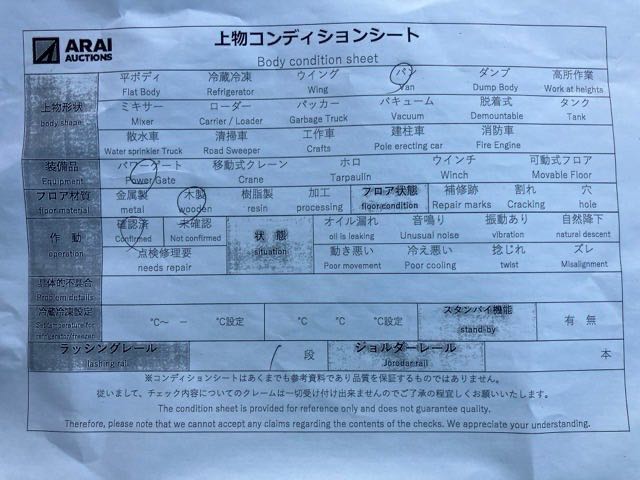 ARAI AUCTIONS
上物コンディションシート
Body condition sheet
上物形状 body shape
平ボディ 冷蔵冷凍 ウイング バン ダンプ 高所作業
Flat Body Refrigerator Wing Van Dump Body Work at heights
ミキサー ローダー パッカー バキューム 脱着式 タンク
Mixer Carrier / Loader Garbage Truck Vacuum Demountable Tank
散水車 清掃車 工作車 建柱車 消防車
Water sprinkler Truck Road Sweeper Crafts Pole erecting car Fire Engine
装備品 パワーゲート 移動式クレーン ホロ ウインチ 可動式フロア
Equipment Power Gate Crane Tarpaulin Winch Movable Floor
フロア材質 金属製 木製 樹脂製 加工 フロア状態 補修跡 割れ 穴
floor material metal wooden resin processing floor condition Repair marks Cracking hole
作動 確認済 未確認 状態 オイル漏れ 音鳴り 振動あり 自然降下
operation Confirmed Not confirmed situation oil is leaking Unusual noise vibration natural descent
点検修理要 動き悪い 冷え悪い 捻じれ ズレ
needs repair Poor movement Poor cooling twist Misalignment
具体的不具合
Problem details
冷蔵冷凍設定 ℃~ - ℃設定 ℃ ℃ ℃設定 スタンバイ機能 有 無
Set temperature for refrigerator/freezer stand-by
ラッシングレール / 段 ジョルダーレール 本
lashing rail Jorodar rail
※コンディションシートはあくまでも参考資料であり品質を保証するものではありません。
従いまして、チェック内容についてのクレームは一切受け付け出来ませんのでご了承の程宜しくお願いいたします。
The condition sheet is provided for reference only and does not guarantee quality.
Therefore, please note that we cannot accept any claims regarding the contents of the checks. We appreciate your understanding.